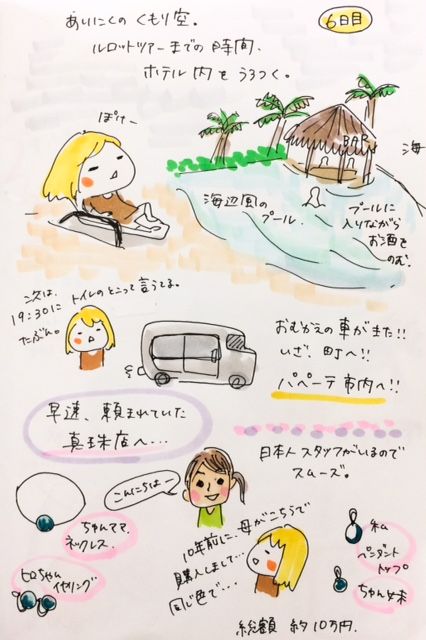 6日目
あいにくのくもり空。
ルロットツアーまでの時間、
ホテル内をうろつく。
ぽけー
BAR
海
海辺風の
プール.
プールに
入りながら
お酒を
のむ.
次は、
19:30に
トイレのとこって言うてる。
たぶん。
おむかえの車がきた!!
いざ、町へ!!
パペーテ市内へ!!
早速、頼まれていた
真珠店へ…
日本人スタッフがいるので
スムーズ。
こんにちはー
ちゃんママ
ネックレス.
ヒロちゃん
イヤリング
10年前に、母がこちらで
購入しまして…
同じ色で…
私
ペンダント
トップ
ちゃん妹
総額 約10万円.